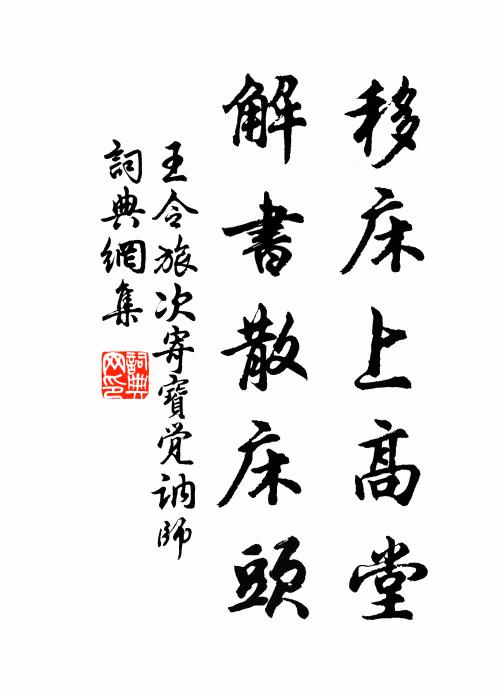 移床上高堂
解書散床頭
王令旅次寄寶覺訥師
詞典網集
詞典網印